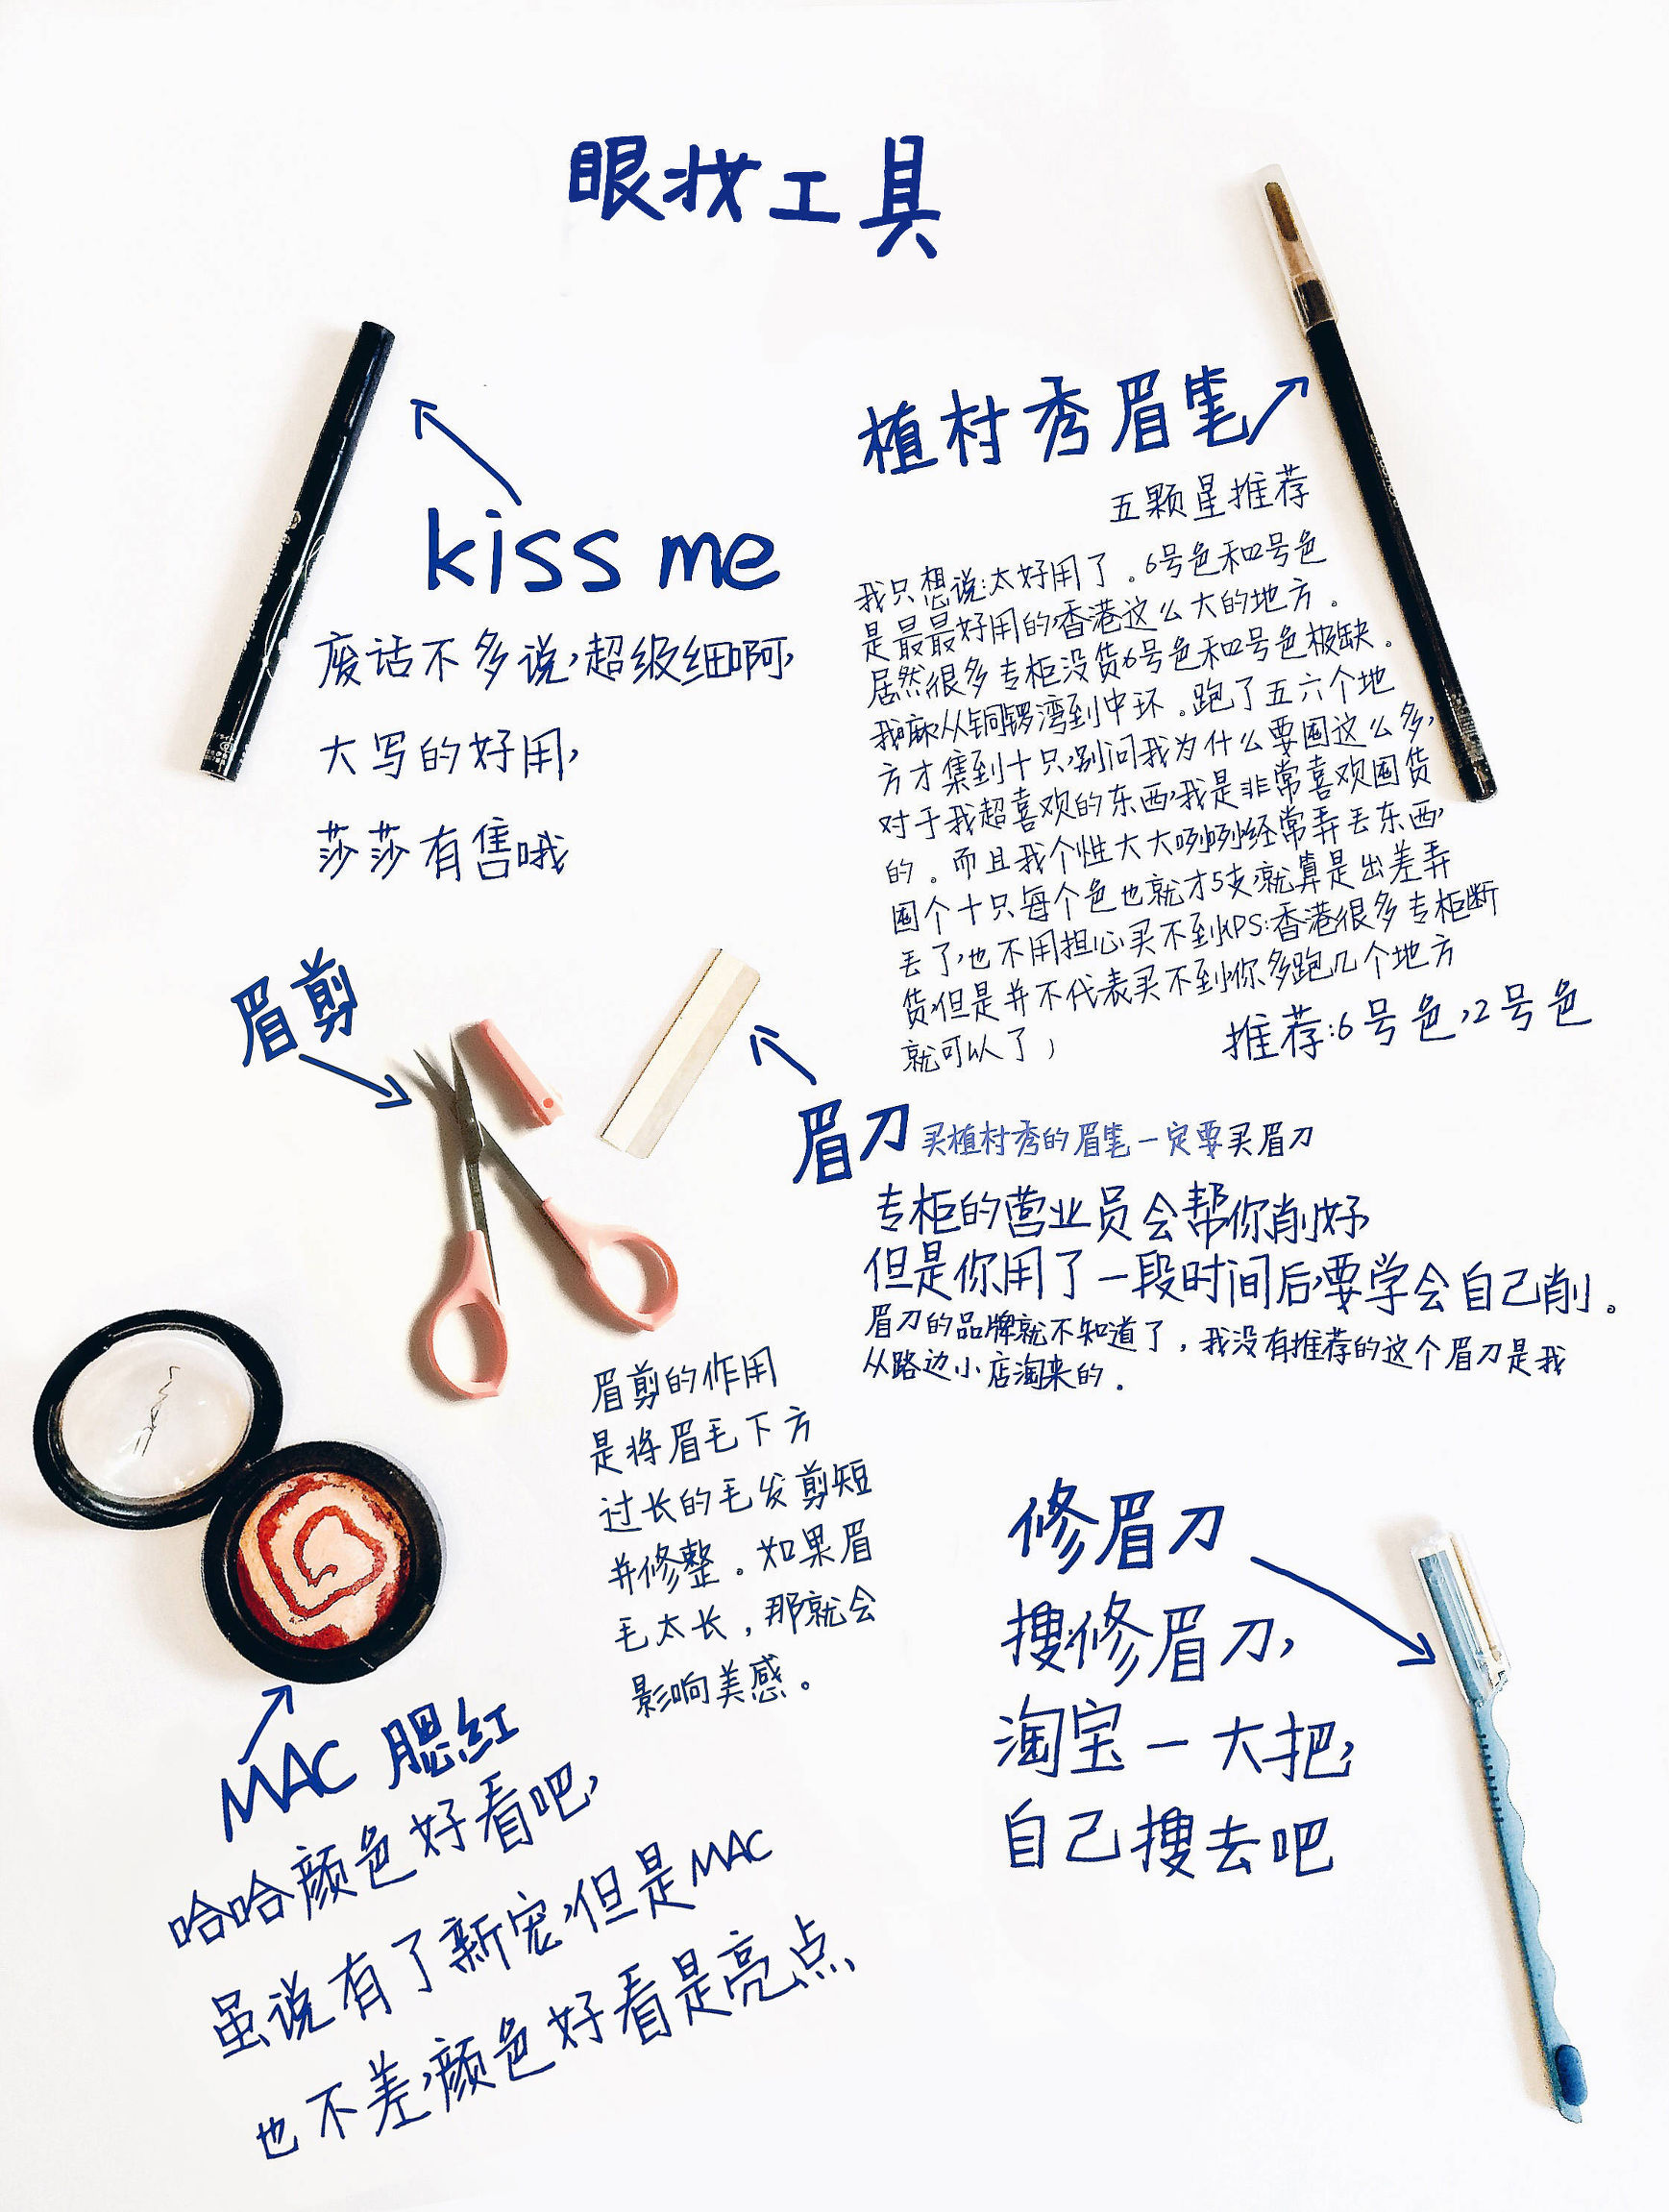 眼妆工具
kiss me
废话不多说,超级细啊,
大写的好用,
莎莎有售哦
植村秀眉笔
五颗星推荐
我只想说:太好用了。6号色和2号色
是最最好用的,香港这么大的地方。
居然很多专柜没货6号色和2号色极缺。
我嘛,从铜锣湾到中环。跑了五六个地
方才集到十只,别问我为什么要囤这么多,
对于我超喜欢的东西,我是非常喜欢囤货
的。而且我个性大大咧咧,经常弄丢东西,
囤个十只每个色也就才5支,就算是出差弄
丢了,也不用担心买不到(PS:香港很多专柜断
货,但是并不代表买不到,你多跑几个地方
就可以了)
推荐:6号色,2号色
眉剪
眉刀 买植村秀的眉笔一定要买眉刀
专柜的营业员会帮你削好,
但是你用了一段时间后,要学会自己削。
眉刀的品牌就不知道了,我没有推荐的这个眉刀是我
从路边小店淘来的。
眉剪的作用
是将眉毛下方
过长的毛发剪短
并修整。如果眉
毛太长,那就会
影响美感。
MAC
MAC 腮红
哈哈颜色好看吧,
虽说有了新宠,但是MAC
也不差,颜色好看是亮点、
修眉刀
搜修眉刀,
淘宝一大把,
自己搜去吧